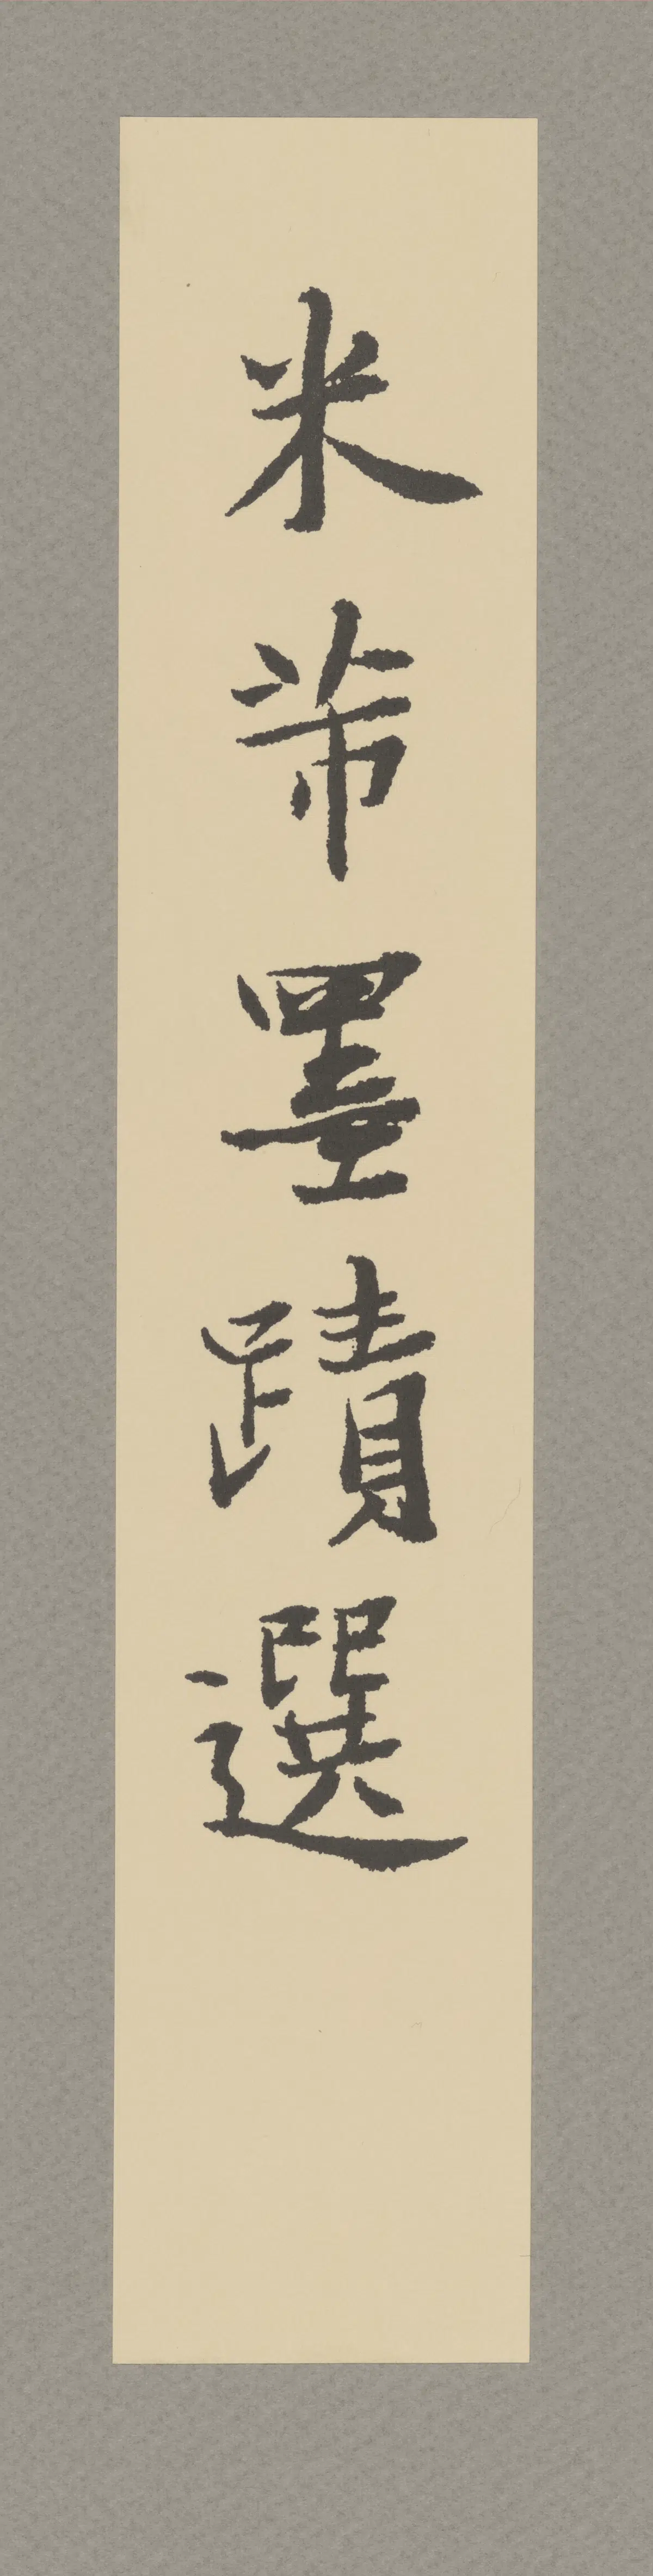 米芾墨蹟選